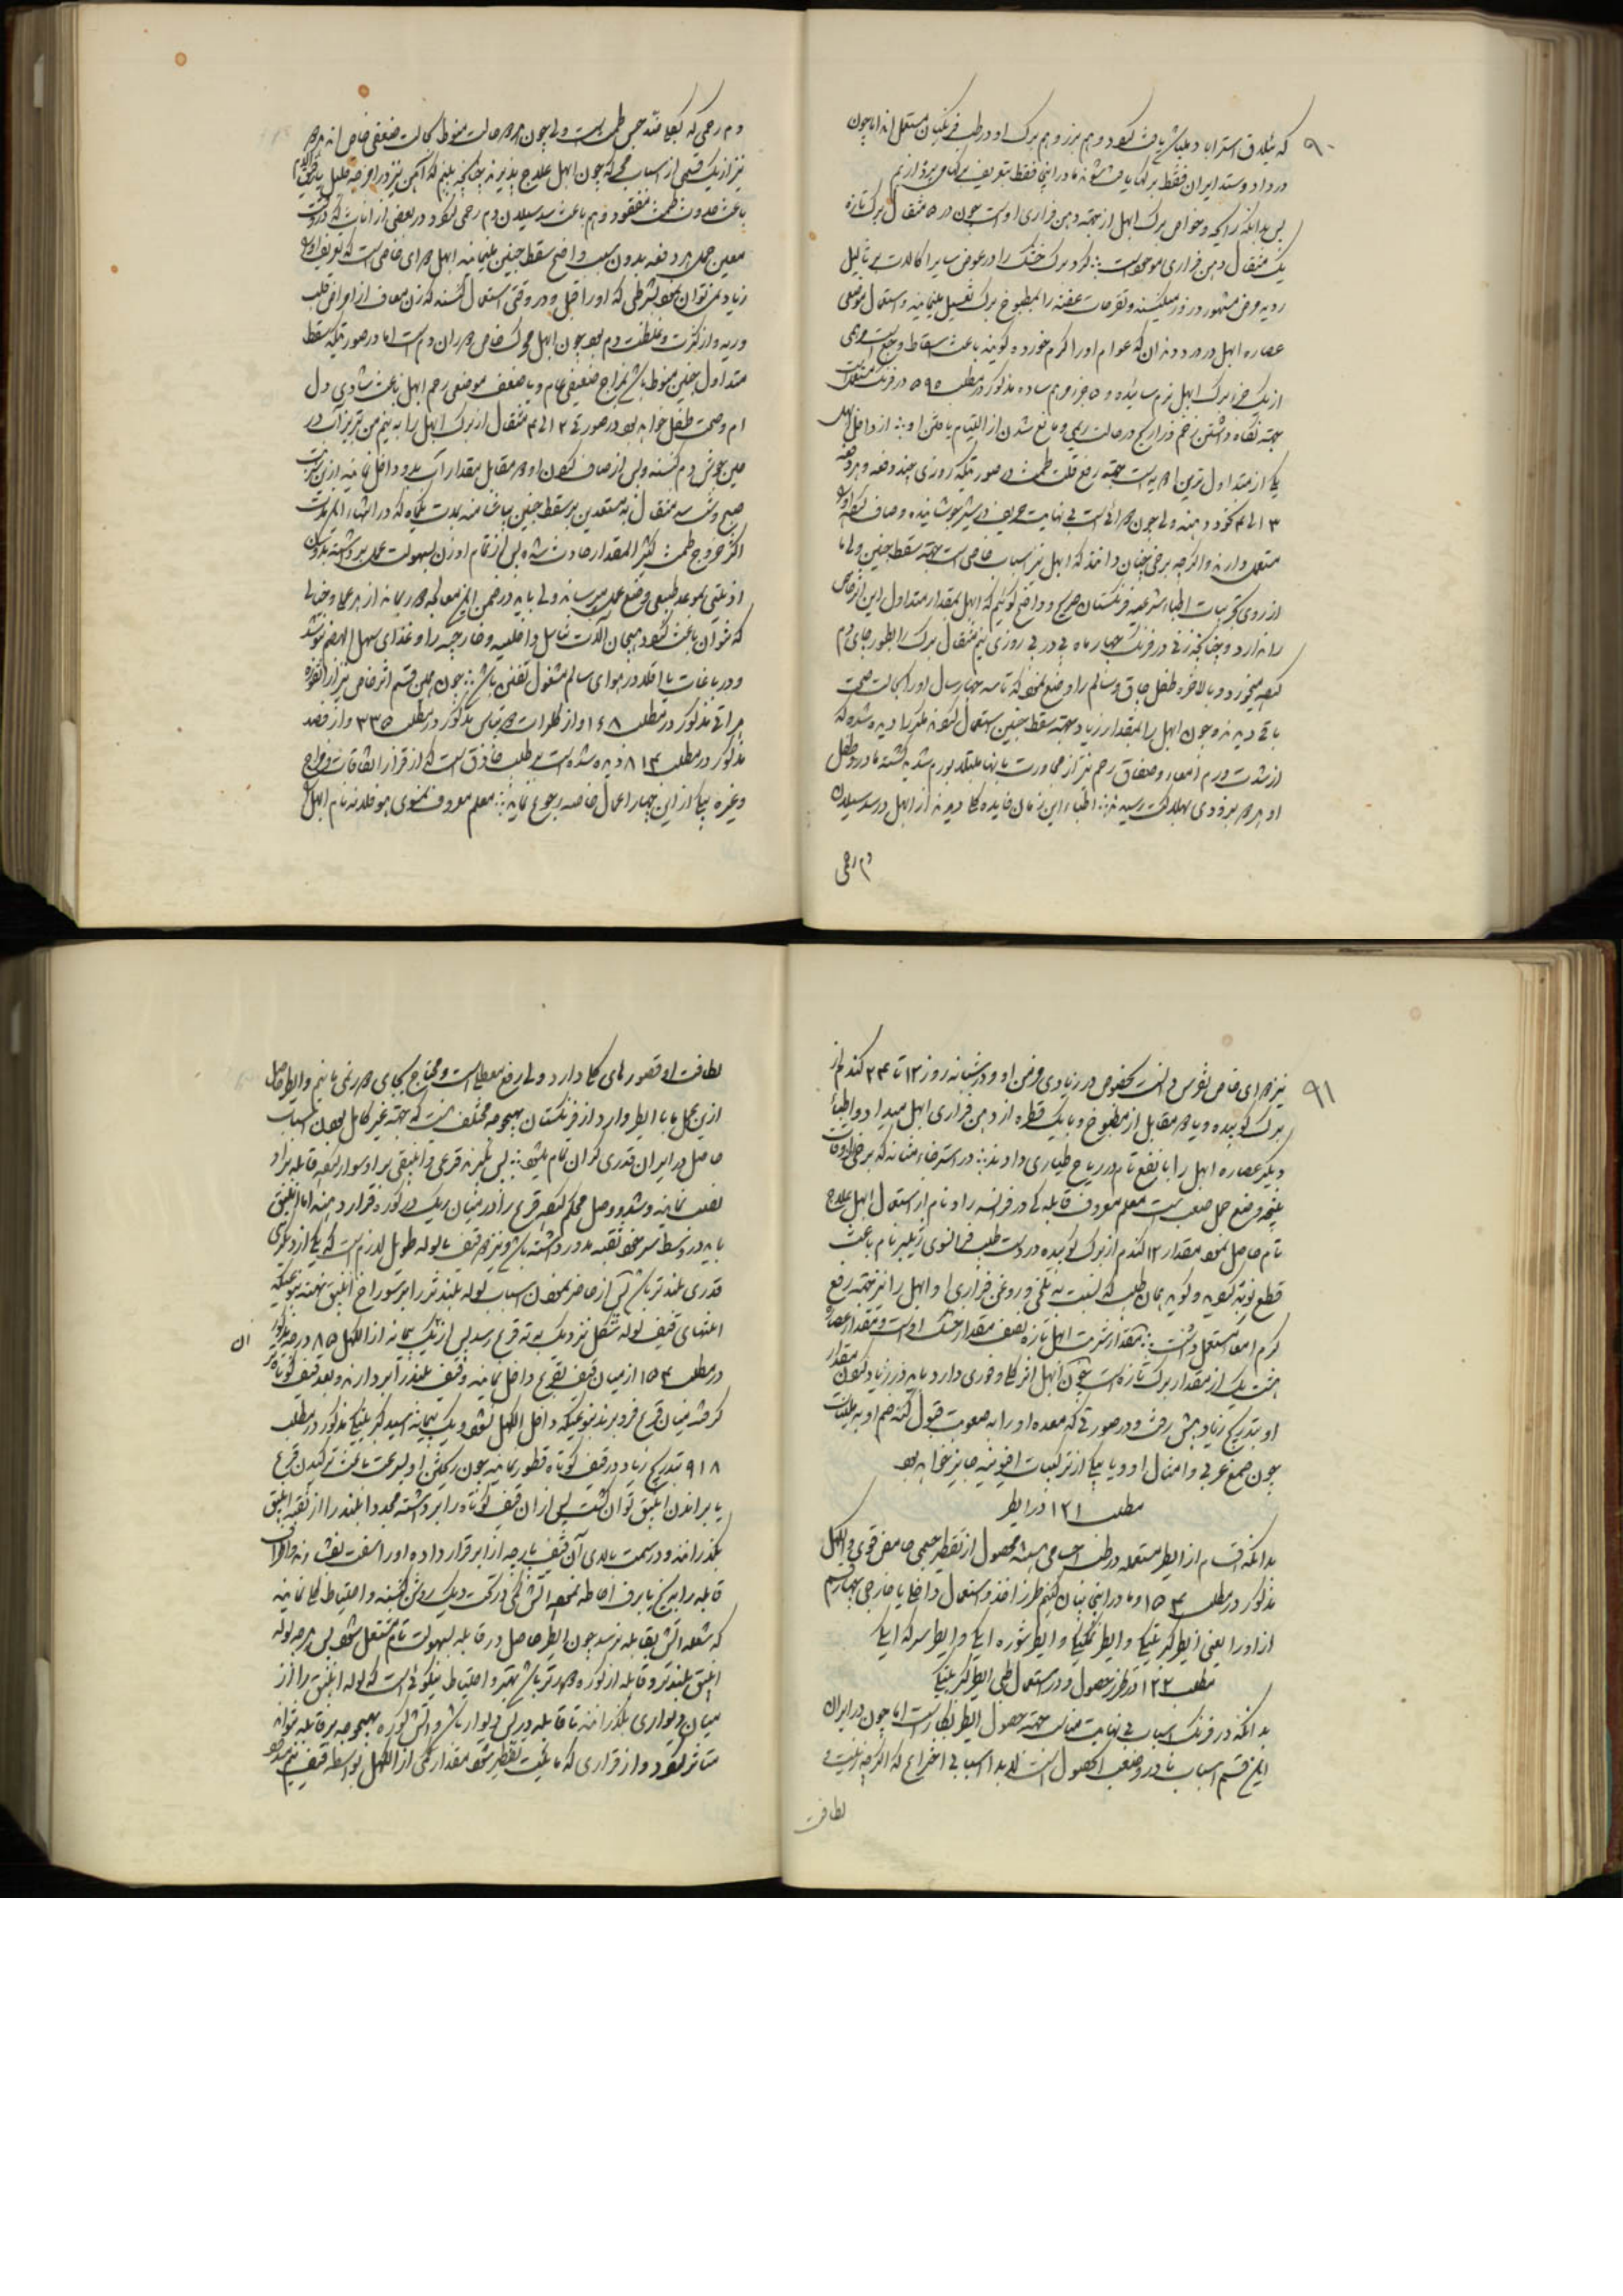 ۹۰
که ییلاق استراباد و میلباش یافت شود و هم بزر و هم برک او در طب فرنکیان مستعمل اند اما چون
در داد و ستد ایران فقط برکها یافت شدند ما در اینجا فقط بتعریف برکهاش پردازیم
پس بدانکه رایحه و خواص برک ابهل از جهة دهن فراری اوست چون در ۵۰ مثقال برک تازه
یک مثقال دهن فراری موجود است
ردیه و مشهور ذرور میکنند و تقرحات عفنه را بمطبوخ برک تغسیل مینمایند و استعمال موضعی
عصاره ابهل در درد دندان که عوام او را کرم خورده کویند باعث اسقاط وجع است
از یک جزء برک ابهل نرم ساییده و ۵ جزء مرهم ساده مذکور در مطلب ۵۹۵ در فرنک مستعمل است
بجهة نکاه داشتن زخم ذراریح در حالت ریمی و مانع شدن از التیام یافتن او از داخل ابهل
یکی از متداول ترین ادویه است جهة رفع قلت طمث در صورتیکه روزی چند دفعه و هر دفعه
۳ الی ۴ نخود دهند ولی چون
مستعمل دارند و اکرچه برخی چنان دانند که ابهل نیز اسباب خاصی است جهة سقط جنین ولی ما
از روی تجربیات اطباء شرعیه فرنکستان صریح و واضح کوئیم که ابهل بمقدار متداول این اثر خاص
را ندارد و چنانچه زنی در فرنک چهار ماه پی در پی روزی نیم مثقال برک را بطور چای دم
کرده میخورد و بالاخره طفل چاق و سالم را وضع نمود که تا سه چهار سال او را بحالت صحت
باقی دیدند و چون ابهل را بمقدار زیاد بجهة سقط جنین استعمال کردند مکررا دیده شده که
از شدت ورم امعاء و صفاق رحم نیز از مجاورت بانها مبتلا بورم شدید کشته مادر و طفل
او هر دو بزودی بهلاکت رسیدند اطباء این زمان فایده کلی دیدند از ابهل در سد سیلان
دم رحمی
دم رحمی که بعلاقه حبس طمث است ولی چون هر دو حالت منوط بحالت ضعفی خاص اند
نیز از یک قسمی از اسباب محرکه چون ابهل علاج پذیرند چنانچه بینیم که آهن نیز در امزجه قلیل
باعث حدوث طمث مفقود و هم باعث سد سیلان دم رحمی شود و در بعضی از اناث که در وقت
معین حمل هر دفعه بدون سبب واضح سقط جنین مینمایند ابهل دوای خاصی است که تعریف او را
زیاد نمیتوان نمود بشرطی که او را قبل در وقتی استعمال کنند که زن معاف از امراض قلب
و ریه و از کثرت و غلظت دم بود چون ابهل محرک خاص دوران دم است اما در صورتیکه سقط
متداول جنین منوط باشد بمزاج ضعیفی عام و یا ضعف موضعی رحم ابهل باعث شادی دل
ام و صحت طفل خواهد بود در صورتی ۲ الی ۴ مثقال از برک ابهل را به نیم من تبریز آب در
حین جوش دم کنند و پس از صاف کردن او در مقابل مقدار آب بدو داخل نمایند ازین شربت
صبح و شب سه مثقال به مستعدین بر سقط جنین بیاشامند بمدت یکماه که در انتهاء این مدت
اکثر خروج طمث کثیر المقدار حادث شده پس از تمام او زن بسهولت حمل برداشته بدون
اذیتی بموعد طبیعی وضع حمل میرساند ولی باید در ضمن این معالجه دوریماند از هر عمل و خیالی
که بتوان باعث شود هیجان آلات تناسل داخلیه و خارجیه را و غذای سهل الهضم نوشد
و در باغات یا اقلا در هوای سالم مشغول تفنن باشد چون همین قسم اثر خاص نیز از انغوزه
هراتی مذکور در مطلب ۱۶۸ و از
مذکور در مطلب ۸۱۴ دیده شده است
وغیره بیکی از این چهار اعمال خاصه رجوع نماید معلم معروف نمسوی هوفلاند نام ابهل را
۹۱
نیز دوای خاص نقرس دانست بخصوص در زیادی مزمن او و در شبانه روز ۱۲ تا ۲۴ کندم از
برک کوبیده و یا در مقابل از مطبوخ و یا یک قطره از دهن فراری ابهل میداد و اطباء
دیکر عصاره ابهل را با نفع تام در ریاح طیاری دادند در استرخاء مثانه که برخی اوقات
نتیجه وضع حمل صعب است معلم معروف قابله کی در فرانسه راو نام از استعمال ابهل علاج
تام حاصل نمود مقدار ۱۲ کندم از برک کوبیده در دست طبیب فرانسوی ژیلبر نام باعث
قطع نوبه کردید و کوید همان طلب که نسبت به تلخی و روغن فراری او ابهل را نیز بجهة رفع
کرم امعاء مستعمل داشت مقدار شربت ابهل تازه نصف مقدار خشک اوست و مقدار عصاره
هشت یک از مقدار برک تازه است چون ابهل اثر کلی و فوری دارد باید در زیاد کردن مقدار
او بتدریج زیاد پیش رفت و در صورتی که معده او را به صعوبت قبول کند ضم او به ملینات
چون صمغ عربی و امثال او و یا بیکی از ترکیبات افیونیه جایز خواهد بود
مطلب ۱۲۱ در ایطر
بدانکه اقسام از ایطر مستعمله در طب اجسامی هستند محصول از تقطیر جیمی حامض قوی و الکهل
مذکور در مطلب ۱۵۴ و ما در اینجا بیان کنیم طرز اخذ و استعمال داخلی یا خارجی چهار قسم
از او را یعنی ایطر کبریتیکی و ایطر نمکیکی و ایطر شوره ایکی و ایطر سرکه ایکی
مطلب ۱۲۲ در طرز حصول و در استعمال طبی ایطر کبریتیکی
بدانکه در فرنک اسباب بی نهایت مناسب جهة حصول ایطر بکار است اما چون در ایران
این قسم اسباب نادر و صعب الحصول است لابد اسبابی اختراع که اکرچه زینت و
لطافت
لطافت او قصورهای کلی دارد ولی رفع معطلی است و محتاج بجای دوری نمانیم و ایطر حاصل
ازین عمل ما با ایطر وارد از فرنکستان بهیچوجه مختلف نیست که بجهة غیر کامل بودن اسباب
حاصل در ایران قدری کران تمام میشود پس بکیرند قرعی و انبیقی بر او سوار کرده قابله بر او
نصب نمایند و شد و وصل محکم کرده قرع را در میان ریک در کوره قرار دهند اما انبیق
باید در وسط سر خود ثقبه مدور داشته باشد و نیز دو قیف با لوله طویل لازم است که یکی از دیکری
قدری بلندتر باشد پس از حاضر نمودن اسباب لوله بلندتر را بر سوراخ انبیق نهند بنوعیکه
انتهای قیف لوله شکل نزدیک به ته قرع رسد پس از یک پیمانه از الکهل ۸۵ درجه مذکور
ان
در مطلب ۱۵۴ از میان قیف بقرع داخل نمایند و قیف بلندتر را بردارند و بعد قیف کوتاه تر
کرفته میان قرع فرو برند بنوعیکه داخل الکهل نشود و یک پیمانه اسید کبریتیکی مذکور در مطلب
۹۱۸ بتدریج زیاد در قیف کوتاه قطور نمایند چون ریختن او بسرعت باعث ترکیدن قرع
یا براندن انبیق توان کشت پس از ان قیف کوتاه را برداشته مجددا بلندتر را از ثقبه انبیق
بکذرانند و در سمت بالای آن قیف پارچه از ابر قرار داده او را سفت بفشارند و اطراف
قابله را به یخ یا برف احاطه نموده آتش کمی در تحت دیک روشن کنند و احتیاط کلی نمایند
که شعله اتش بقابله نرسد چون ایطر حاصل در قابله بسهولت تام مشتعل شود پس هر چه لوله
انبیق بلندتر و قابله از کوره دورتر باشد بهتر و احتیاط نیکوئی است که لوله انبیق را از
میان دیواری بکذرانند تا قابله در پس دیوار باشد و آتش کوره بهیچوجه بر قابله نتواند
متاثر شود و از قراری که مایعیت تقطیر شود مقدار کمی از الکهل بواسطه قیف